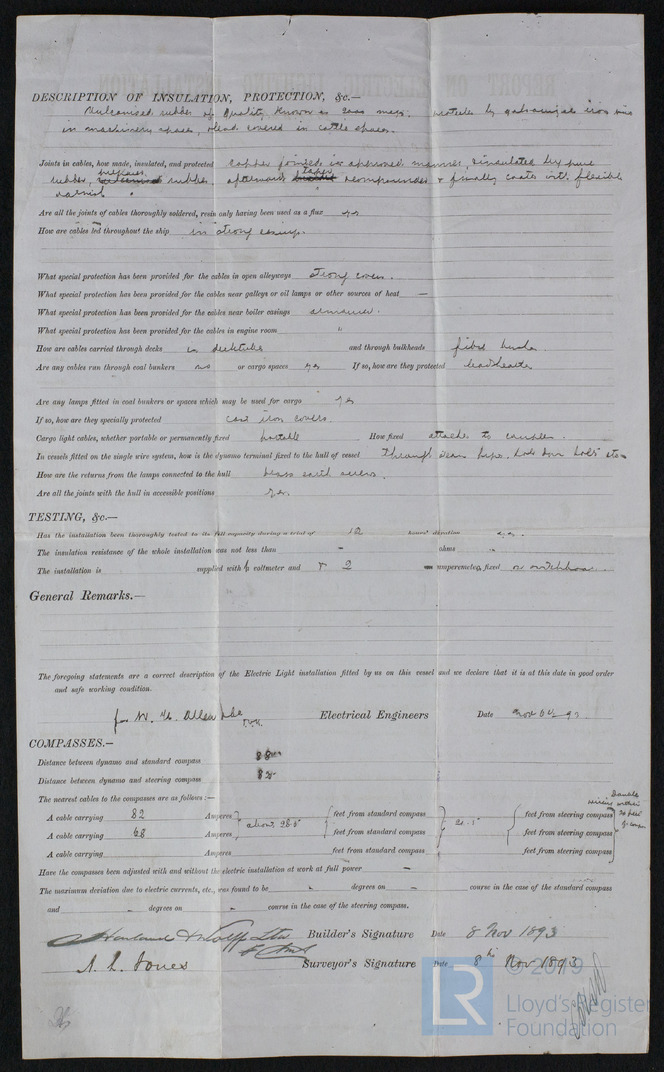 DESCRIPTION OF INSULATION, PROTECTION, &c.—
Vulcanised rubber of Quality Known as mega. protected by galvanized iron
in machinery spaces, lead covered in cattle spaces.
Joints in cables, how made, insulated, and protected copper jointed in approved manner, insulated by pure
rubber, rubber, afterwards & finally coated with flexible
varnish.
Are all the joints of cables thoroughly soldered, resin only having been used as a flux yes
How are cables led throughout the ship in strong casings.
What special protection has been provided for the cables in open alleyways strong covers.
What special protection has been provided for the cables near galleys or oil lamps or other sources of heat —
What special protection has been provided for the cables near boiler casings armoured.
What special protection has been provided for the cables in engine room "
How are cables carried through decks in deck tubes and through bulkheads fibre bushes
Are any cables run through coal bunkers no or cargo spaces yes If so, how are they protected
Are any lamps fitted in coal bunkers or spaces which may be used for cargo yes
If so, how are they specially protected cast iron covers
Cargo light cables, whether portable or permanently fixed portable How fixed attached to
In vessels fitted on the single wire system, how is the dynamo terminal fixed to the hull of vessel through
How are the returns from the lamps connected to the hull brass earth screws.
Are all the joints with the hull in accessible positions yes.
TESTING, &c.—
Has the installation been thoroughly tested to its full capacity during a trial of 12 hours' duration yes.
The insulation resistance of the whole installation was not less than - ohms
The installation is supplied with voltmeter and 2 amperemeters fixed on switchboard.
General Remarks.—
The foregoing statements are a correct description of the Electric Light installation fitted by us on this vessel and we declare that it is at this date in good order
and safe working condition.
for W. H. Allen Electrical Engineers Date Nov 6th 93.
COMPASSES.—
Distance between dynamo and standard compass
Distance between dynamo and steering compass
The nearest cables to the compasses are as follows:—
A cable carrying 82 Amperes feet from standard compass feet from steering compass
A cable carrying 68 Amperes about 28.5 feet from standard compass 20.5 feet from steering compass
A cable carrying Amperes feet from standard compass feet from steering compass
Double
wiring within
Have the compasses been adjusted with and without the electric installation at work at full power —
The maximum deviation due to electric currents, etc., was found to be degrees on course in the case of the standard compass
and degrees on course in the case of the steering compass.
Harland & Wolff Ltd Builder's Signature Date 8 Nov 1893
Surveyor's Signature Date 8th Nov 1893
© 2019
LR Lloyd's Register
Foundation